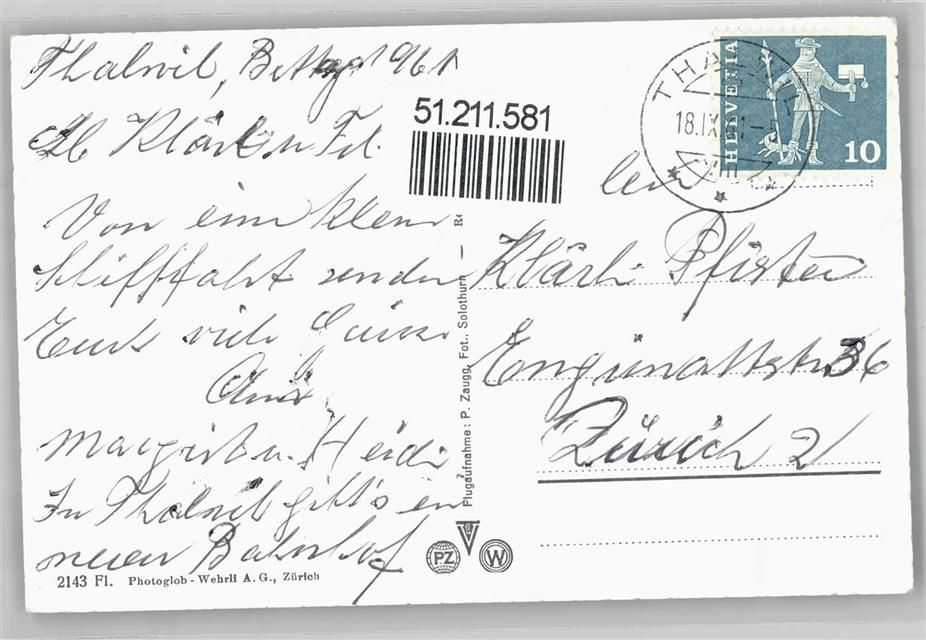 Thalwil, Bettag 1961
Lb. Klärli u. Frl.
Von einer kleinen
Schifffahrt senden
Euch viele Grüsse
Margrit u. Heidi
In Thalwil gibt's ein
neuen Bahnhof
2143 Fl. Photoglob-Wehrli A.G., Zürich
51.211.581
Flugaufnahme: P. Zaugg, Fot., Solothurn
PZ
W
THALWIL
18.IX.61
HELVETIA
10
Klärli Pfister
Engimattstr. 36
Zürich 2